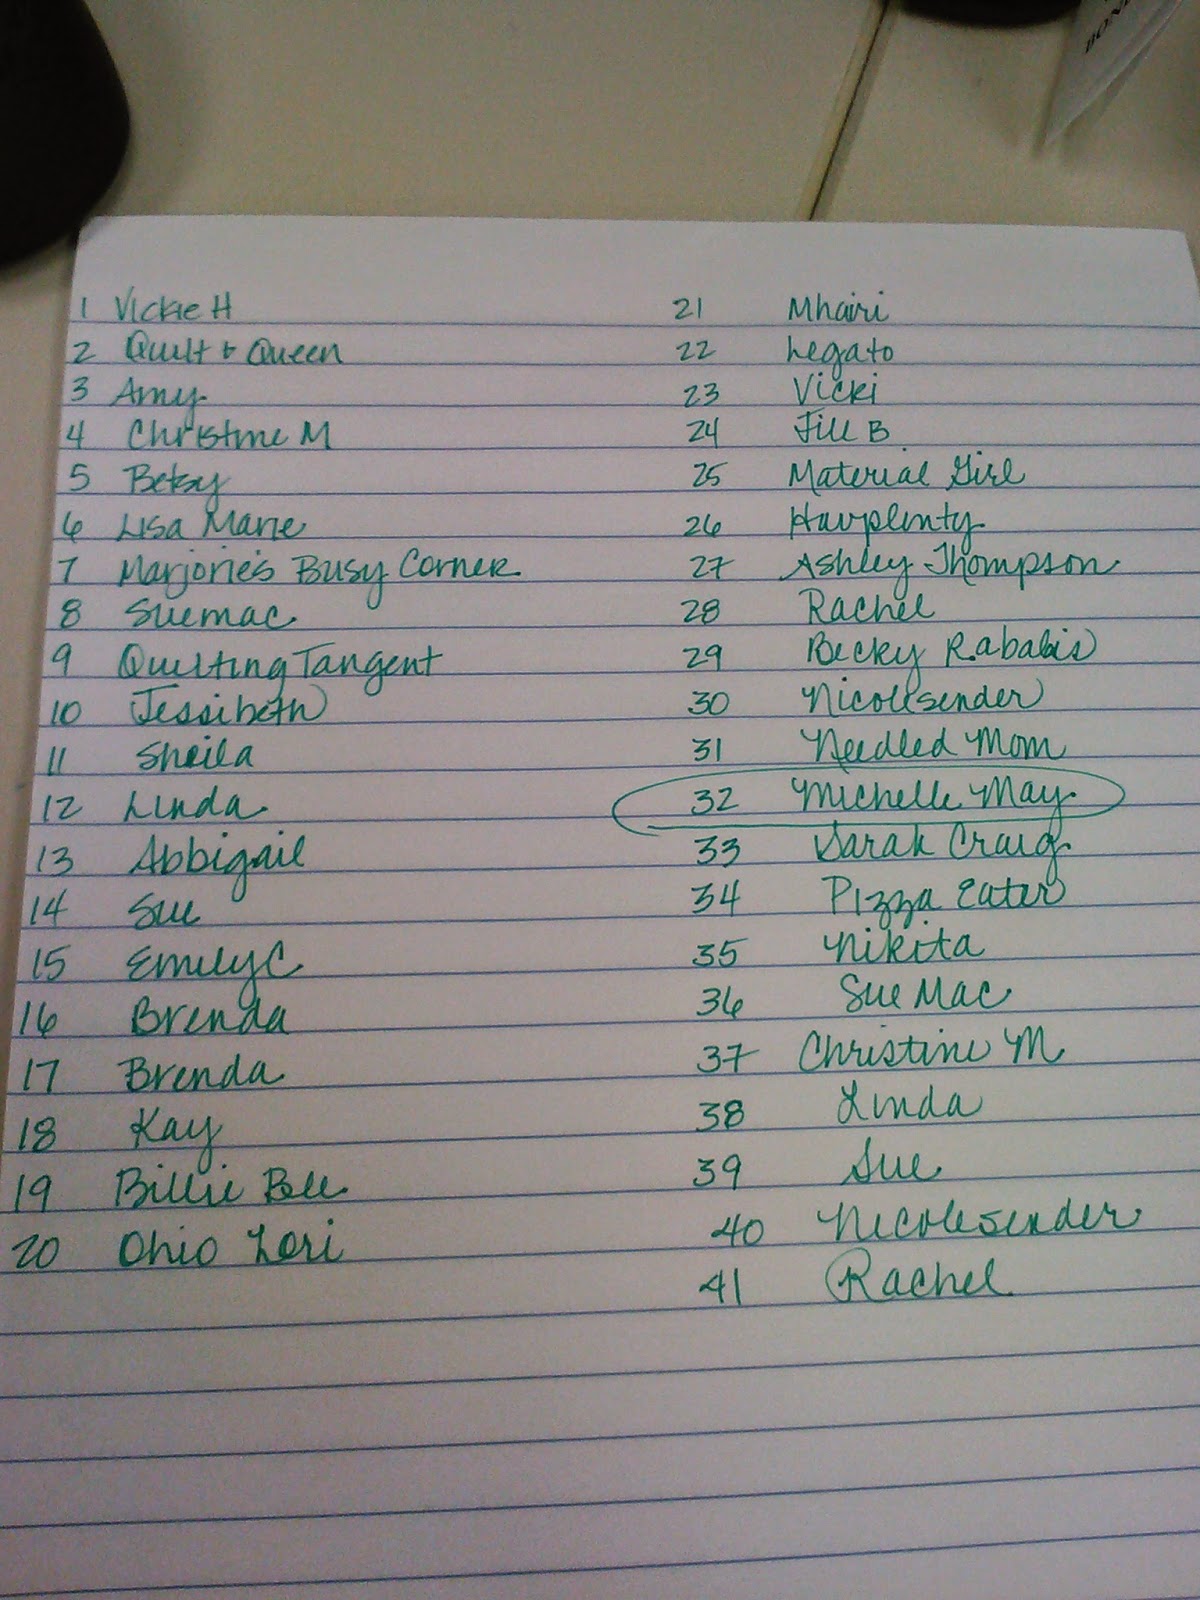 BOND
1 Vickie H
2 Quilt & Queen
3 Amy
4 Christine M
5 Betsy
6 Lisa Marie
7 Marjorie's Busy Corner
8 Suemac
9 Quilting Tangent
10 Jessibeth
11 Sheila
12 Linda
13 Abbigail
14 Sue
15 Emily C
16 Brenda
17 Brenda
18 Kay
19 Billie Bee
20 Ohio Lori
21 Mhairi
22 Legato
23 Vicki
24 Jill B
25 Material Girl
26 Havplenty
27 Ashley Thompson
28 Rachel
29 Becky
30 Nicolesender
31 Needled Mom
32 Michelle May
33 Sarah Craig
34 Pizza Eater
35 Nikita
36 Sue Mac
37 Christine M
38 Linda
39 Sue
40 Nicolesender
41 Rachel